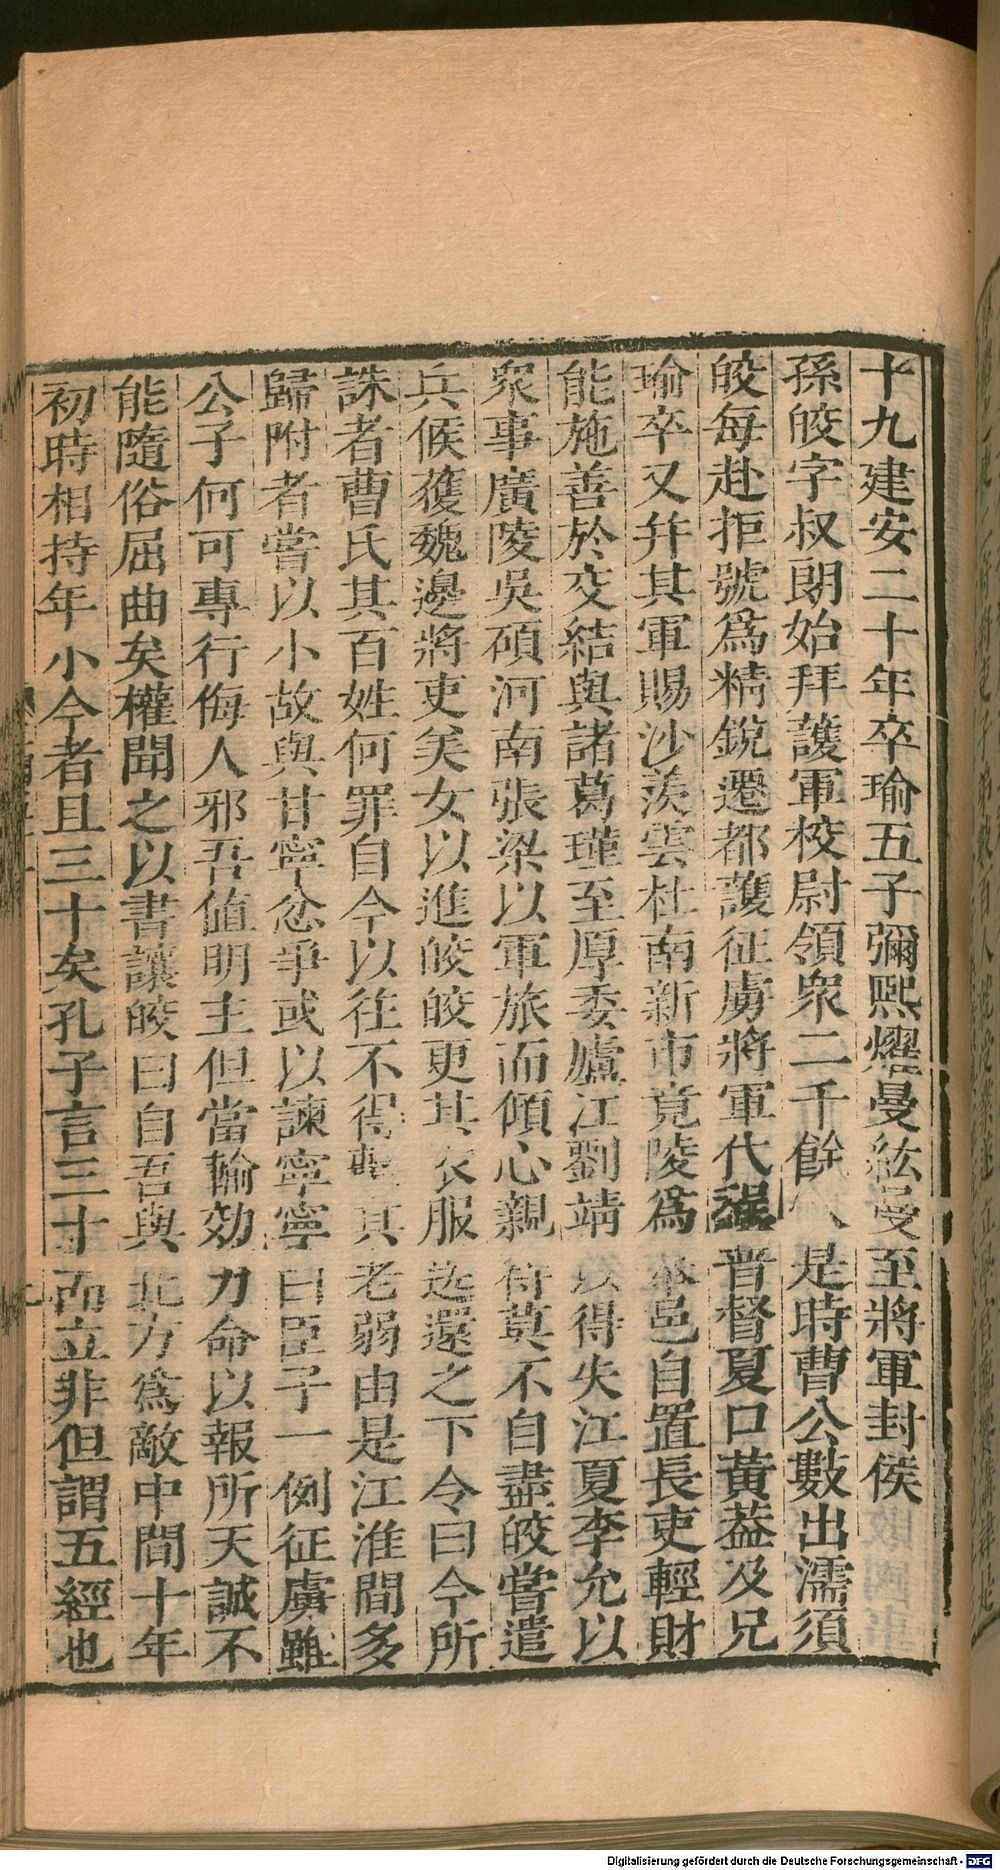 十九建安二十年卒瑜五子彌熙燿曼紘曼至將軍封侯
孫皎字叔朗始拜護軍校尉領衆二千餘人是時曹公數出濡須
皎每赴拒號爲精銳遷都護征虜將軍代程普督夏口黃葢及兄
瑜卒又幷其軍賜沙羨雲杜南新市竟陵爲奉邑自置長吏輕財
能施善於交結與諸葛瑾至厚委廬江劉靖以得失江夏李允以
衆事廣陵吳碩河南張梁以軍旅而傾心親待莫不自盡皎嘗遣
兵候獲魏邊將吏美女以進皎皎更其衣服送還之下令曰今所
誅者曹氏其百姓何罪自今以往不得擊其老弱由是江淮間多
歸附者嘗以小故與甘寧忿爭或以諫寧寧曰臣子一例征虜雖
公子何可專行侮人邪吾値明主但當輸効力命以報所天誠不
能隨俗屈曲矣權聞之以書讓皎曰自吾與北方爲敵中間十年
初時相持年小今者且三十矣孔子言三十而立非但謂五經也
Digitalisierung gefördert durch die Deutsche Forschungsgemeinschaft - DFG